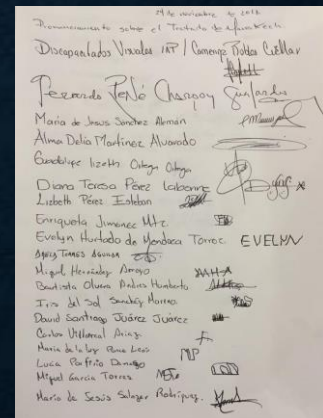 29 de noviembre de 2018
Pronunciamiento sobre el Tratado de Marrakech
Discapacitados Visuales IAP / Camerino Robles Cuellar
Fernando René Charnoy
María de Jesus Sánchez Alemán
Alma Delia Martínez Alvarado
Guadalupe lizeth Ortega Ortega
Diana Teresa Pérez Labonne
Lisbeth Pérez Esteban
Enriqueta Jimenez Mtz.
Evelyn Hurtado de Mendoza Torrez EVELYN
Miguel Hernández Arroyo MAHA
Bautista Olvera Andres Humberto
Iris del Sol Sanchez Moreno
David Santiago Juárez Juárez
Carlos Villarreal Arias
María de la Luz Leos
Lucia Porfirio
Miguel Garcia Torres
María de Jesús Salazar Rodríguez.